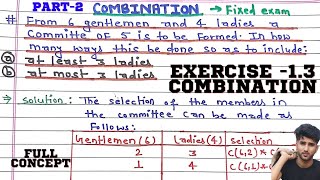 PART-2 COMBINATION → Fixed exam
# From 6 gentlemen and 4 ladies a
Committe of 5 is to be formed. In how
many ways this be done so as to include:
(a) at least 3 ladies
(b) at most 2 ladies
EXERCISE -1.3
COMBINATION
⇒ Solution: The selection of the members in
the committee can be made as
Follows:
Gentlemen (6) Ladies (4) selection
2 3 C(6,2)×C
1 4 C(6,1)×
FULL
CONCEPT